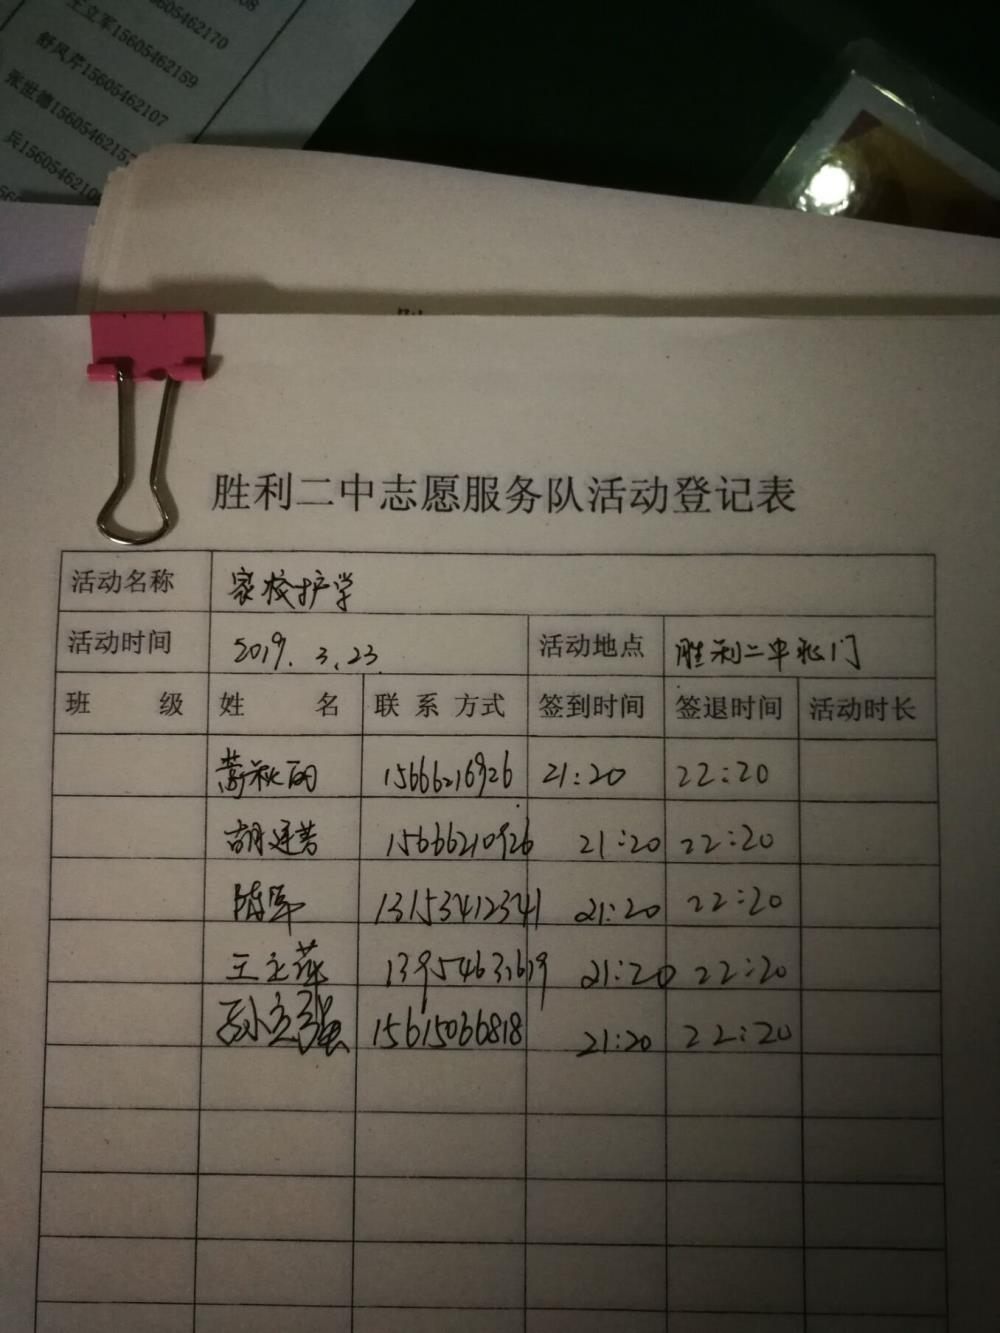 5605462170
王立军15605462159
舒风芹15605462107
张世德1560546215
兵1560546210
胜利二中志愿服务队活动登记表
活动名称 家校护学
活动时间 2019.3.23 活动地点 胜利二中北门
班 级 姓 名 联 系 方式 签到时间 签退时间 活动时长
15666216926 21:20 22:20
15666210926 21:20 22:20
陈军 13153412341 21:20 22:20
王立萍 13954631619 21:20 22:20
孙立强 15615066818 21:20 22:20